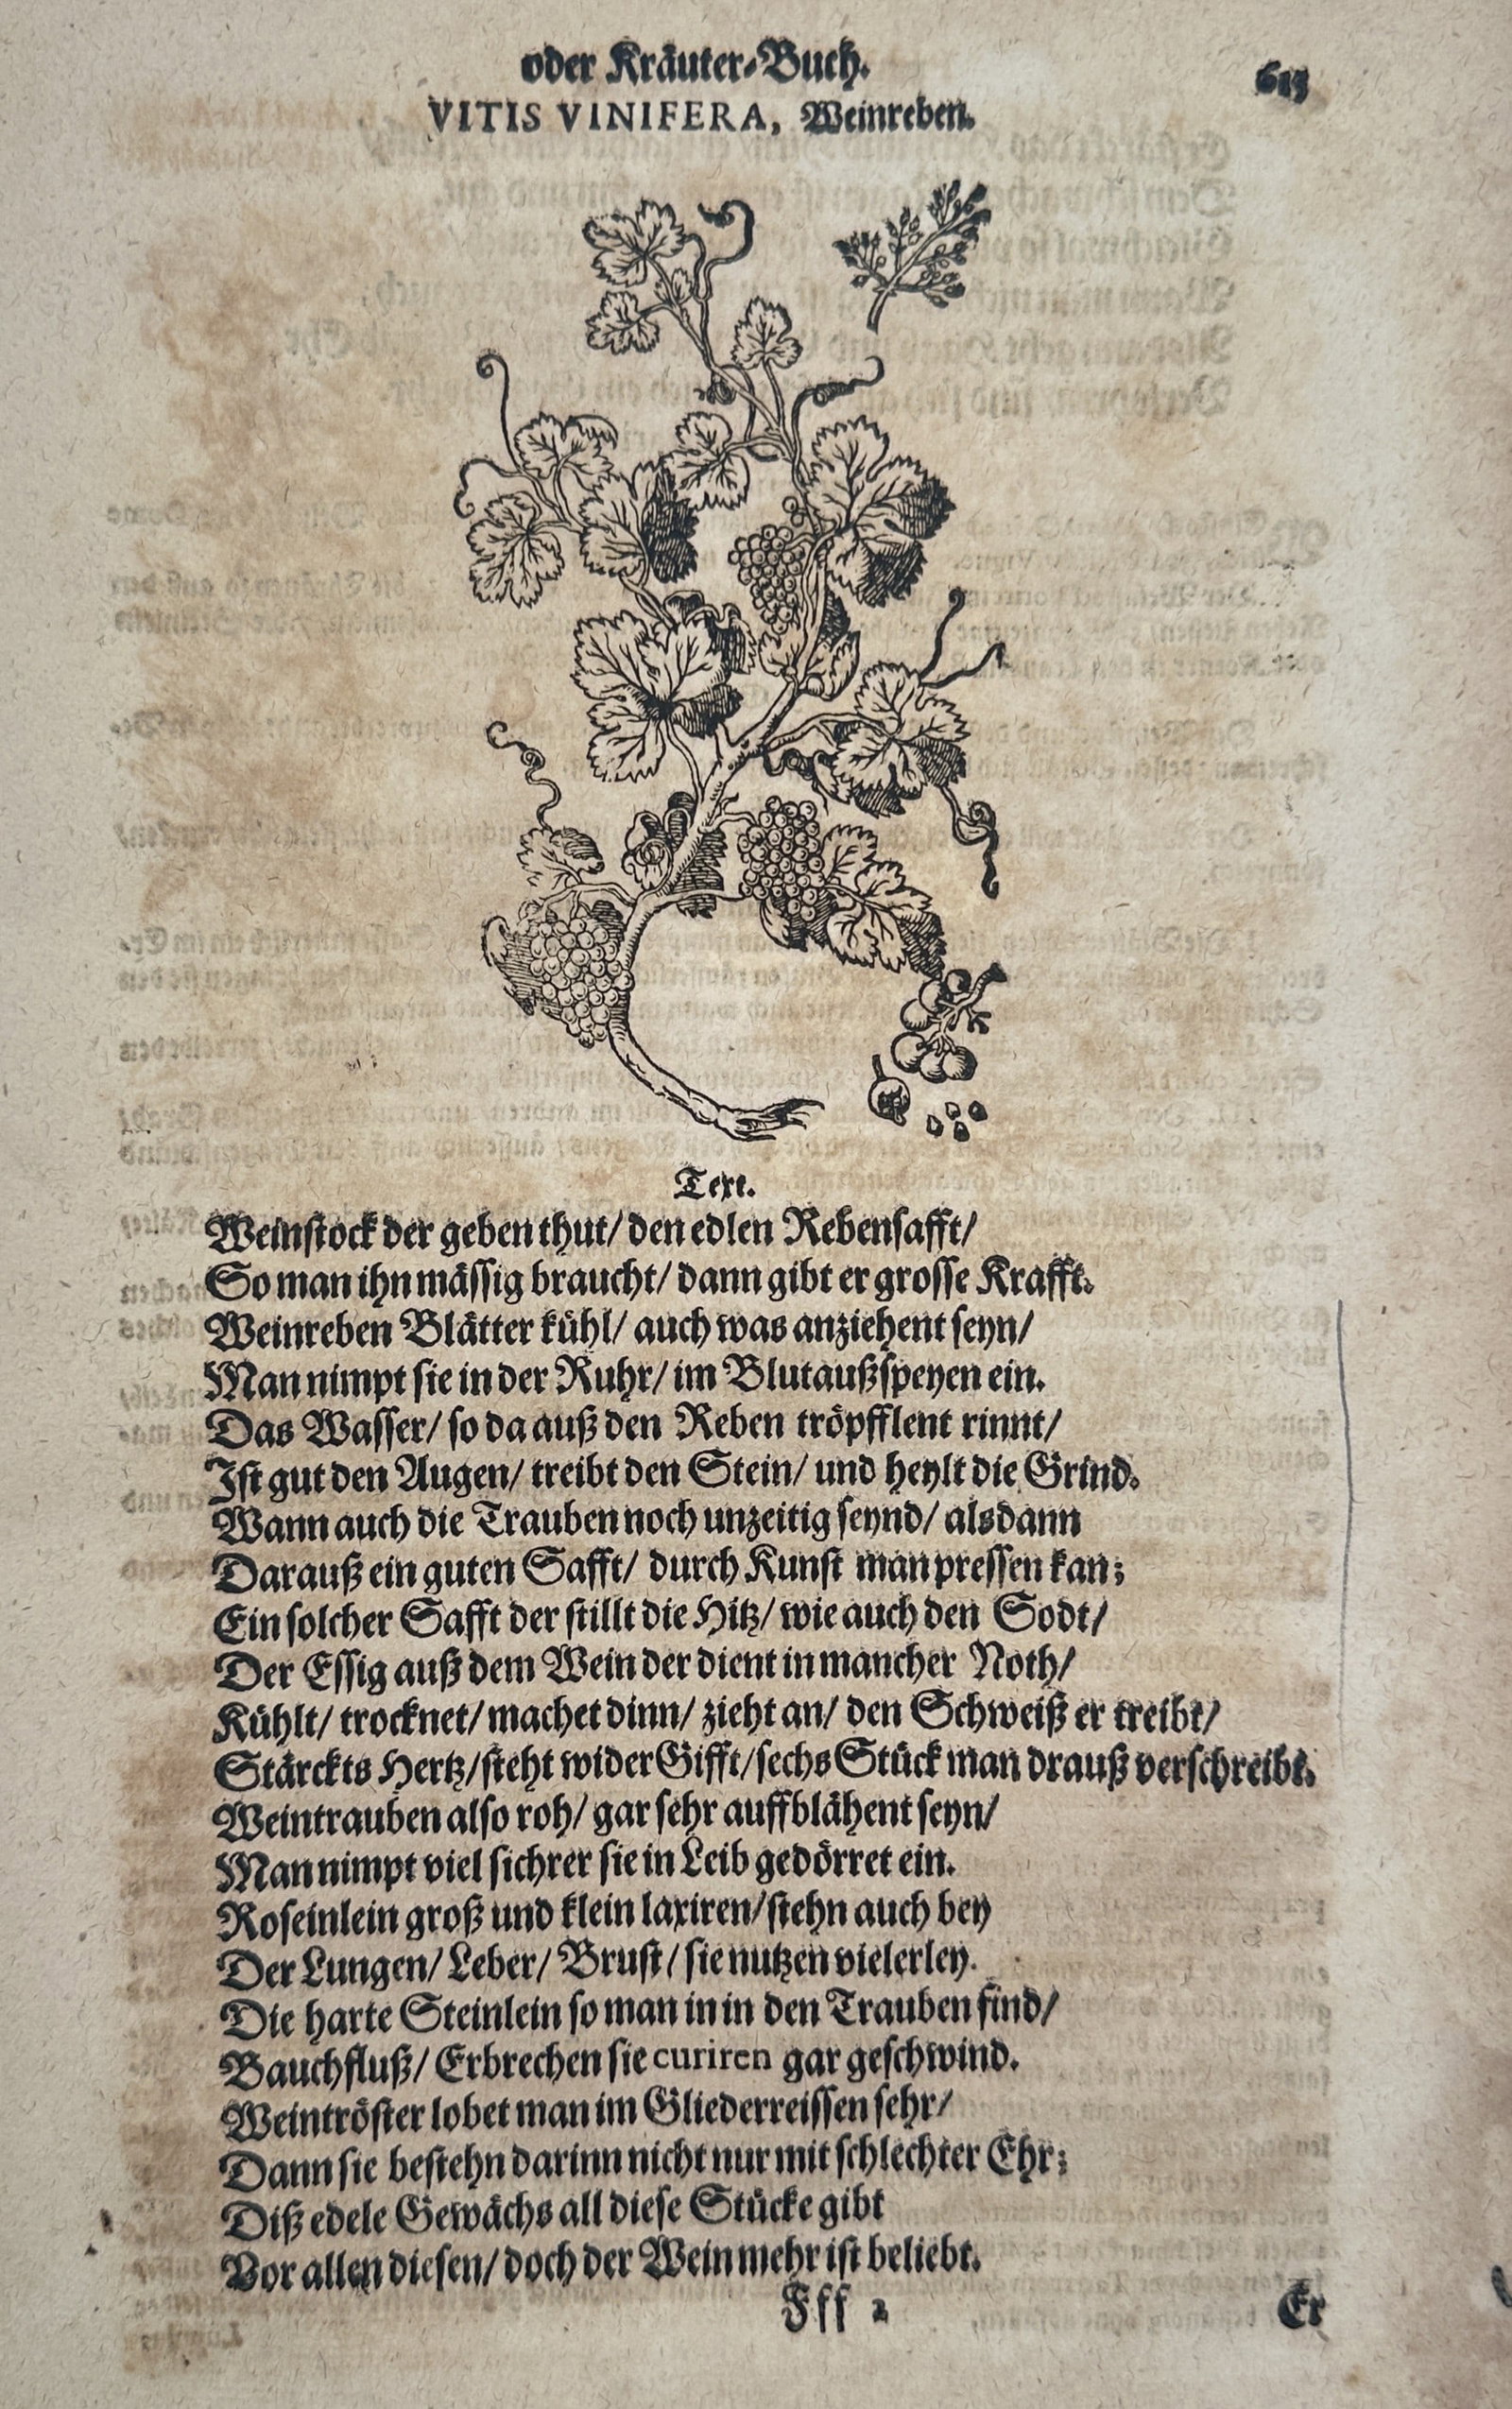 oder Kräuter-Buch.
VITIS VINIFERA, Weinreben.
Text.
Weinstock der geben thut/ den edlen Rebensafft/
So man ihn mässig braucht/ dann gibt er grosse Krafft.
Weinreben Blätter kühl/ auch was anziehent seyn/
Man nimpt sie in der Ruhr/ im Blutaußspeyen ein.
Das Wasser/ so da auß den Reben tröpfflent rinnt/
Ist gut den Augen/ treibt den Stein/ und heylt die Grind.
Wann auch die Trauben noch unzeitig seynd/ alsdann
Darauß ein guten Safft/ durch Kunst man pressen kan;
Ein solcher Safft der stillt die Hitz/ wie auch den Sodt/
Der Essig auß dem Wein der dient in mancher Noth/
Kühlt/ trocknet/ machet dinn/ zieht an/ den Schweiß er treibt/
Stärckts Hertz/ steht wider Gifft/ sechs Stück man drauß verschreibt.
Weintrauben also roh/ gar sehr auffblähent seyn/
Man nimpt viel sichrer sie in Leib gedörret ein.
Roseinlein groß und klein laxiren/ stehn auch bey
Der Lungen/ Leber/ Brust/ sie nutzen vielerley.
Die harte Steinlein so man in in den Trauben find/
Bauchfluß/ Erbrechen sie curiren gar geschwind.
Weintröster lobet man im Gliederreissen sehr/
Dann sie bestehn darinn nicht nur mit schlechter Ehr;
Diß edele Gewächs all diese Stücke gibt
Vor allen diesen/ doch der Wein mehr ist beliebt.
Fff 2
Er